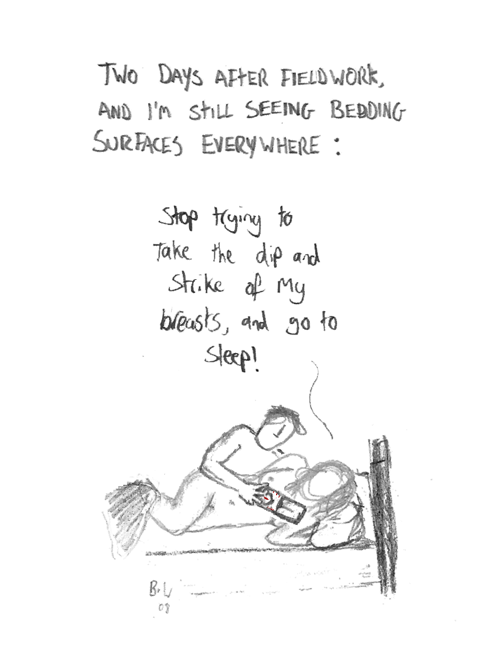 TWO DAYS AFTER FIELDWORK,
AND I'M STILL SEEING BEDDING
SURFACES EVERYWHERE :
Stop trying to
Take the dip and
Strike of My
breasts, and go to
Sleep!
08